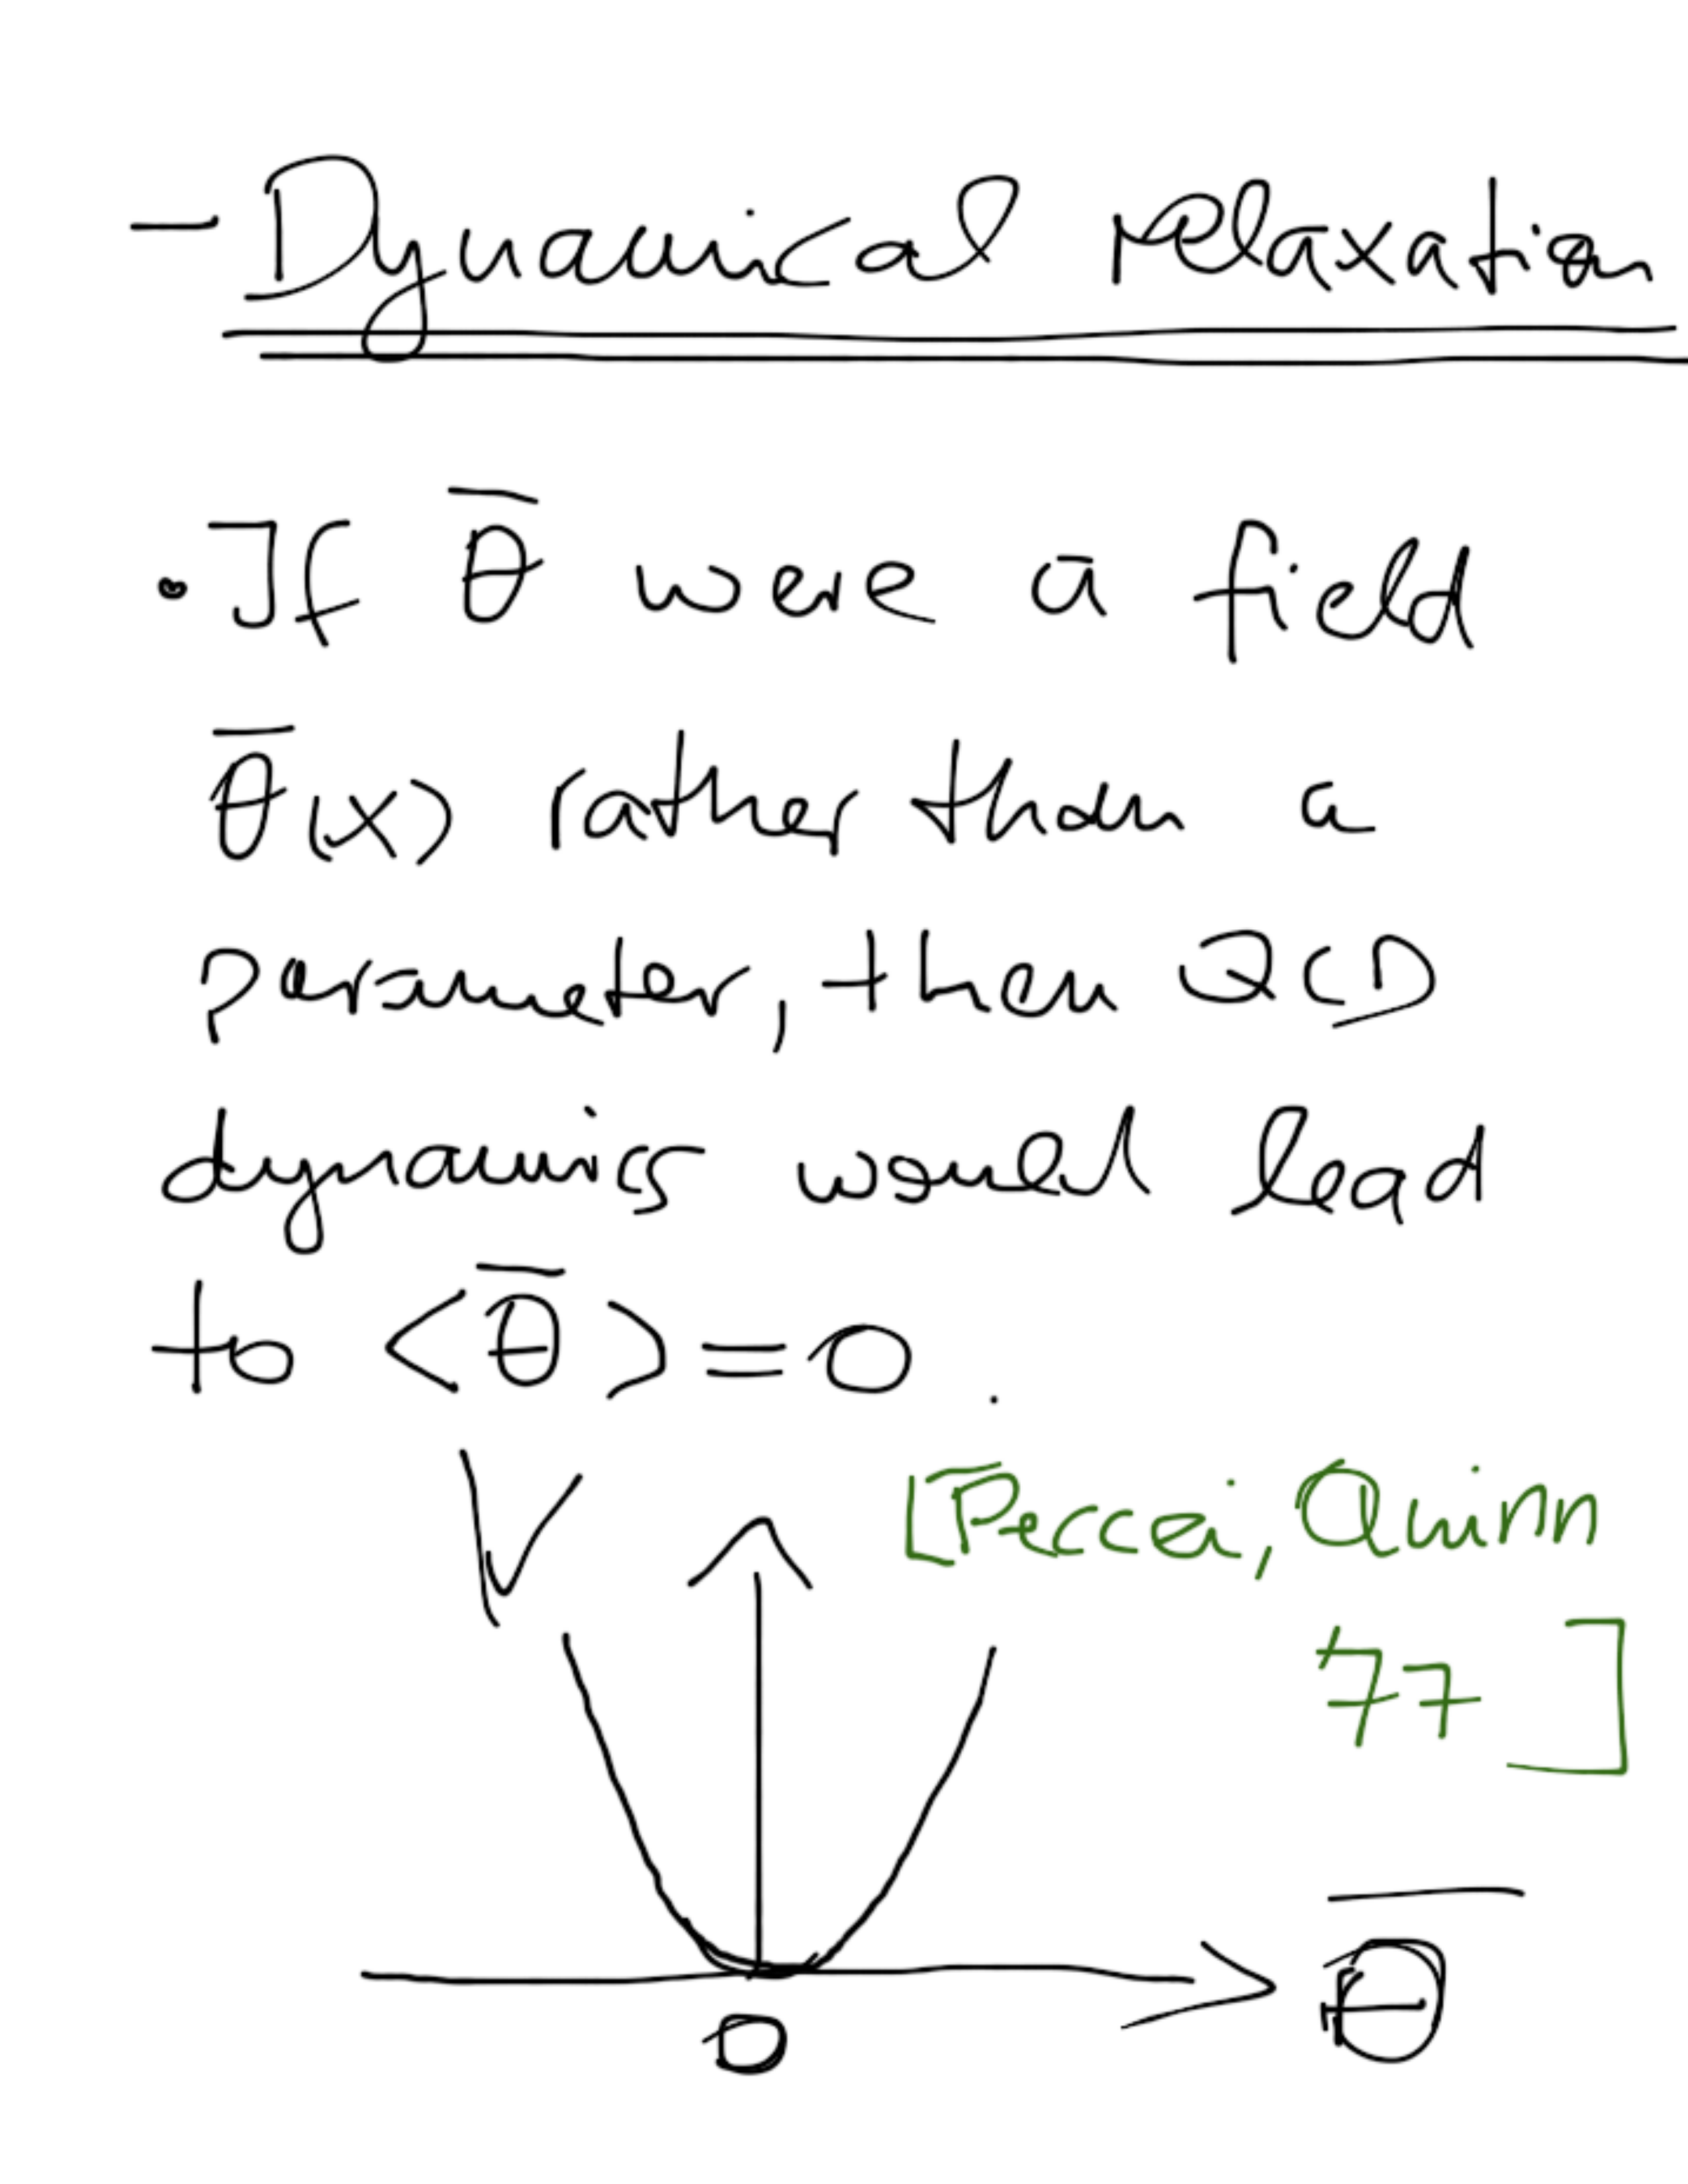 - Dynamical relaxation
• If θ̅ were a field
θ̅(x) rather than a
parameter, then QCD
dynamics would lead
to <θ̅>=0.
V
[Peccei, Quinn
77]
θ̅
0